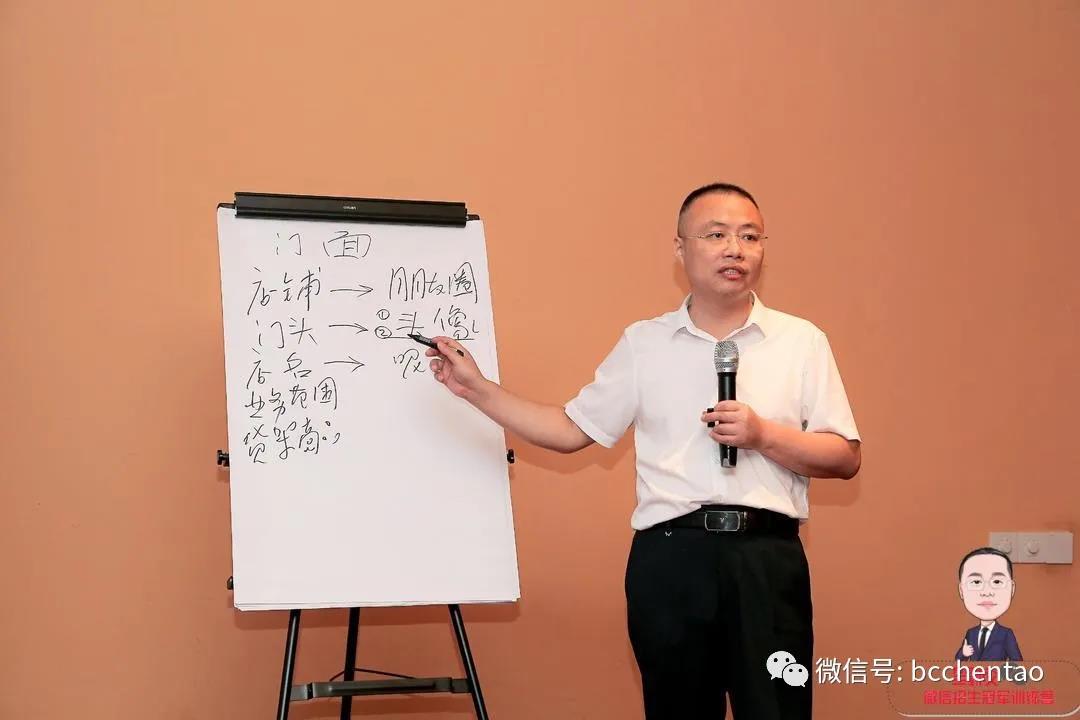 门面
店铺 → 朋友圈
门头 → ①②头像
店名 → 呢
业务范围
货架商品
微信号: bcchentao
微信招生冠军训练营